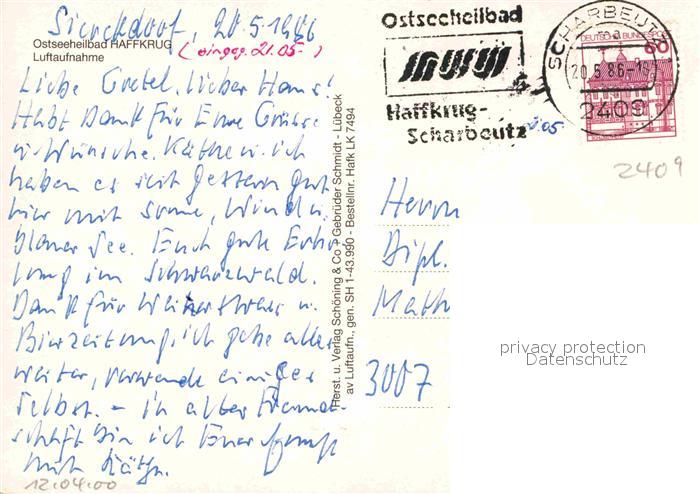 Sierksdorf, 20.5.1986
Ostseeheilbad HAFFKRUG
Luftaufnahme
(eingeg. 21.05.)
Liebe Gretel, lieber Hans!
Habt Dank für Eure Grüsse
u. Wünsche. Käthe u. ich
haben es seit gestern gut
hier mit Sonne, Wind u.
blauer See. Euch gute Erho-
lung im Schwarzwald.
Dank für u.
Bierzeitung, ich gebe alles
weiter, verwende einiges
selbst. - In alter Freund-
schaft bin ich Euer
mit Käthe.
12.04.00
Herst. u. Verlag Schöning & Co + Gebrüder Schmidt - Lübeck
av Luftaufn., gen. SH 1-43.990 - Bestellnr. Hafk LK 7494
Ostseeheilbad
Haffkrug-
Scharbeutz
SCHARBEUTZ
20.5.86-18
2409
DEUTSCHE BUNDESPOST
60
2409
Herrn
Dipl.
Math
3007
privacy protection
Datenschutz